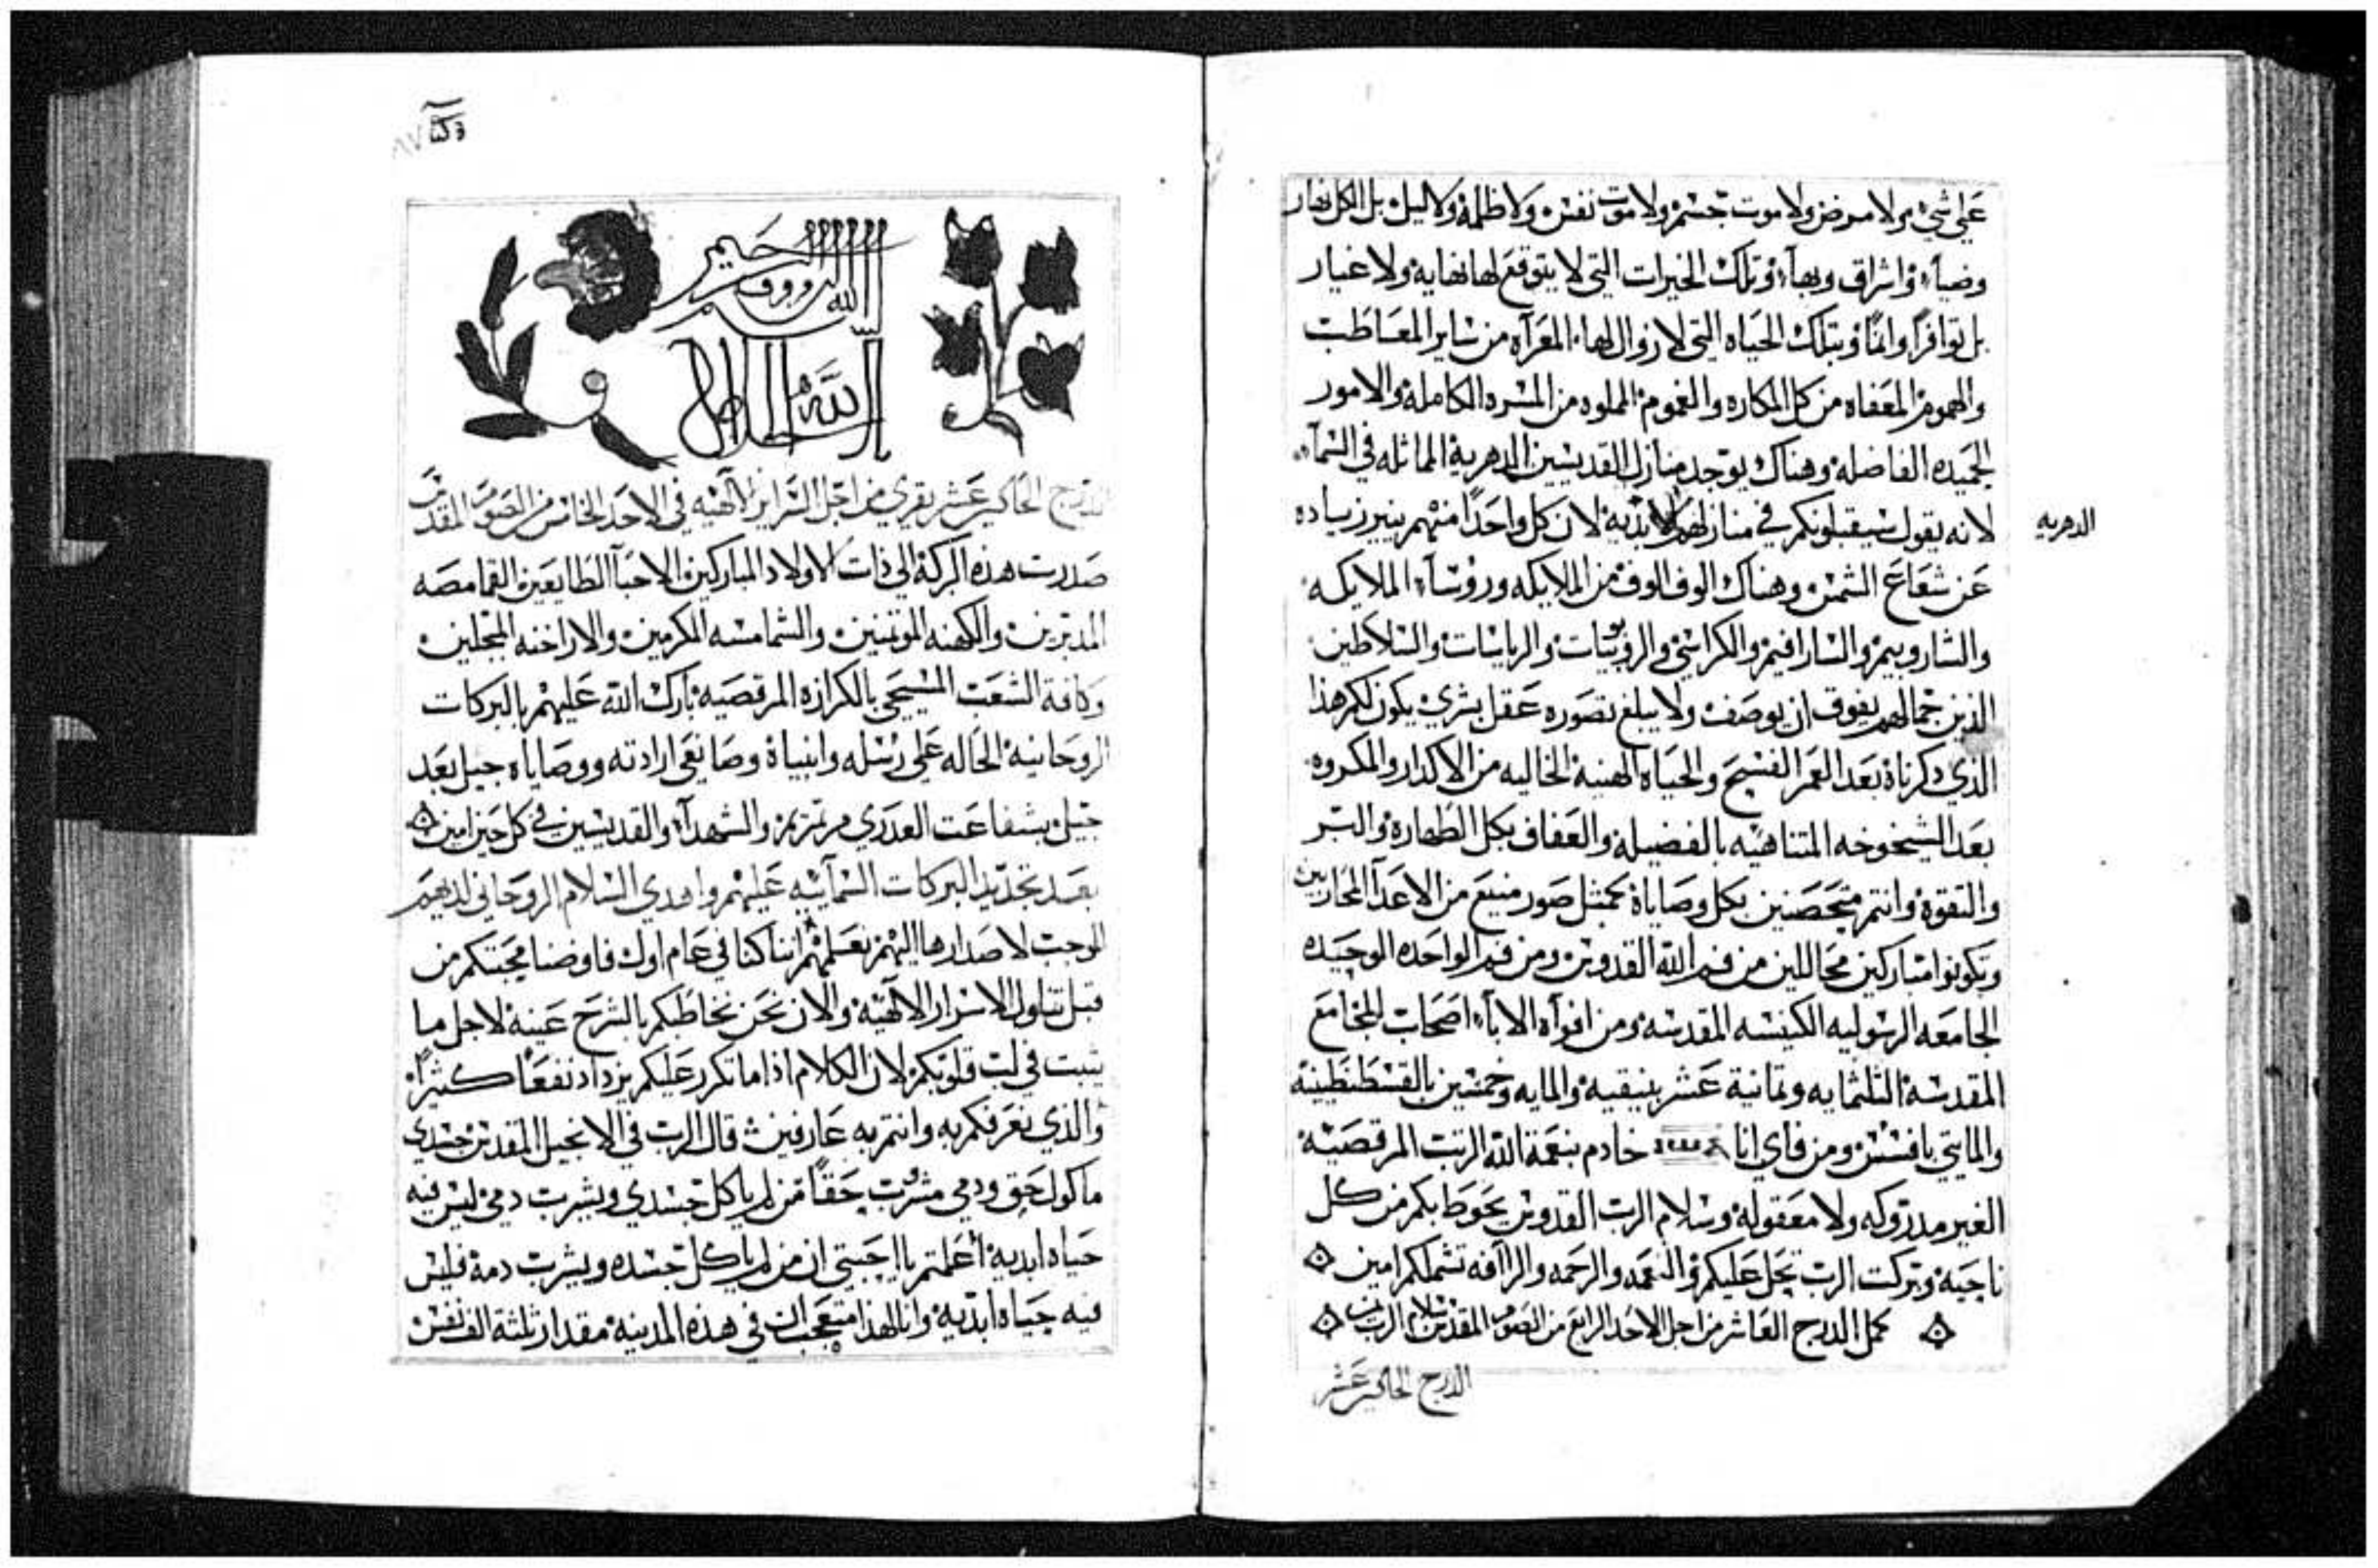 على شي ولا مرض ولا موت جسم ولا موت نفس ولا ظلمة ولا ليل بل الكل نهار
وضيآء واشراق وبهآء وتلك الخيرات التي لا يتوقع لها نهاية ولا غيار
بل توافرًا وانمًا وبتلك الحياه التي لا زوال لها المعرآه من ساير المعاطب
والهموم المعفاه من كل المكاره والغموم المملوه من المسره الكاملة والامور
الحميده الفاضلة وهناك يوجد منازل القديسين الدهرية الماثله في السمآء
لانه يقول سيقبلونكم في منازلهم الابدية لان كل واحدًا منهم ينير زياده
الدهريه
عن شعاع الشمس وهناك الوف الوف من الملايكه وروسآء الملايكه
والشاروبيم والسارافيم والكراسي والربوبيات والرياسات والسلاطين
الذين جمالهم يفوق ان يوصف ولا يبلغ تصوره عقل بشري يكون لكم هذا
الذي ذكرناة بعد العمر الفسيح والحياه الهنية الخاليه من الاكدار والمكروه
بعد الشيخوخه المتناهيه بالفضيلة والعفاف بكل الطهارة والبر
والتقوة وانتم متحصنين بكل وصاياة كمثل صور منيع من الاعدآ المحاربين
وتكونوا مباركين محاللين من فم الله القدوس ومن فم الواحده الوحيده
الجامعه الرسوليه الكنيسه المقدسه ومن افوآه الابآء اصحاب المجامع
المقدسة الثلثمايه وثمانية عشر بنيقيه والمايه وخمسين بالقسطنطينية
والمايتي بافسس ومن فاي انا خادم بنعمة الله الرتب المرقصية
الغير مدروكه ولا معقولة وسلام الرب القدوس يحوط بكم من كل
ناحية وبركت الرب تحل عليكم والنعمه والرحمه والرآافه تشملكم امين
كمل الدرج العاشر من اجل الاحد الرابع من الصوم المقدس بسلام الرب امين
الدرج الحادي عشر
٨٧
بسم الله الرووف الرحيم
الدرج الحادي عشر يقري من اجل السراير الالهيه في الاحد الخامس من الصوم المقدس
صدرت هذه البركة الي ذات الاولاد المباركين الاحبآ الطايعين القمامصه
المدبرين والكهنه الموتمنين والشمامسه المكرمين والاراخنه المبجلين
وكافة الشعب المسيحي بالكرازه المرقصيه بارك الله عليهم بالبركات
الروحانية الحاله على رسله وانبياة وصانعي ارادته ووصاياه جيل بعد
جيل بشفاعت العدري مرتمريم والشهدآء والقديسين في كل حين امين
بعد تجديد البركات السمآييه عليهم واهدي السلام الروحاني لديهم
الموجب لاصدارها اليهم نعلمهم اننا كنا في عام اول فاوضنا محبتكم من
قبل تناول الاسرار الالهيه والان نحن نخاطبكم بالشرح عينه لاجل ما
يثبت في لب قلوبكم لان الكلام اذا ما تكرر عليكم يزداد نفعًا كثيرًا
والذي نعرفكم به وانتم به عارفين قال الرب في الانجيل المقدس جسدي
ماكول حق ودمي مشرب حقًا من لم ياكل جسدي ويشرب دمي ليس فيه
حياه ابدية أعلمتم يا احبتي ان من لم ياكل جسده ويشرب دمة فليس
فيه حياه ابدية وانا لهذا متعجب ان في هذه المدينه مقدار ثلثة الف نفس